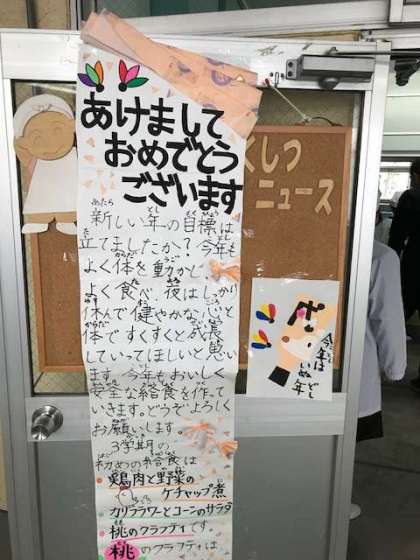 あけまして
おめでとう
ございます
新しい年の目標は
立てましたか?今年も
よく体を動かど、
よく食べ、夜はしっかり
休んで健やかな心と
体ですくすくと成長
していってほしいと思い
ます。今年もおいしく
安全な給食を作って
いきます。どうぞよろしく
お願いします。
3学期の
初めの給食は
鶏肉と野菜の
ケチャップ煮
カリフラワーとコーンのサラダ
桃のクラフティです。
桃のクラフティは
くしつ
ニュース
今年は
いぬ年